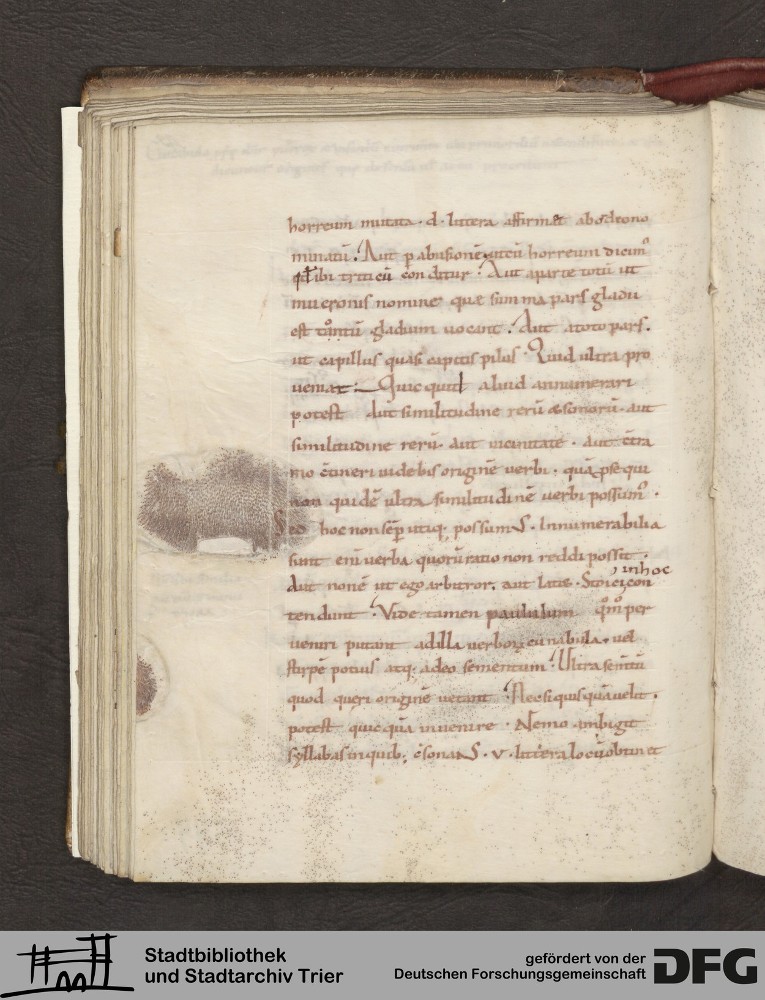 horreum mutata · d · littera affirmat abodeono
minatū. Aut p abusionē uteū horreum dicim9
ibi triticū conditur. Aut aparte totū ut
mucronis nomine quæ summa pars gladii
est totū gladium uocant. Aut atoto pars.
ut capillus quasi capitis pilus. Quid ultra pro
uehar: Quicquid aliud annumerari
potest aut similitudine rerū & sonorū. aut
similitudine rerū. aut uicinitate. aut c̄tra
rio c̄tineri uidebis originē uerbi. quā p̄sequi
non quidē ultra similitudinē uerbi possum9.
Sed hoc non sēp utiq; possumus. Innumerabilia
sunt enī uerba quorū ratio non reddi possit.
Aut non ē ut ego arbitror, aut latet. Stoici con
inhoc
tendunt. Vide tamen paululum per
ueniri putant ad illa uerborū cunabula. uel
stirpē potius atq; adeo sementum. Ultra
quod queri originē uetant. Nec si quis quā uelit.
potest quicquā inuenire. Nemo ambigit
syllabas in quib; c̄sonans · v · littera locū obtinet
Stadtbibliothek
und Stadtarchiv Trier
gefördert von der
Deutschen Forschungsgemeinschaft
DFG